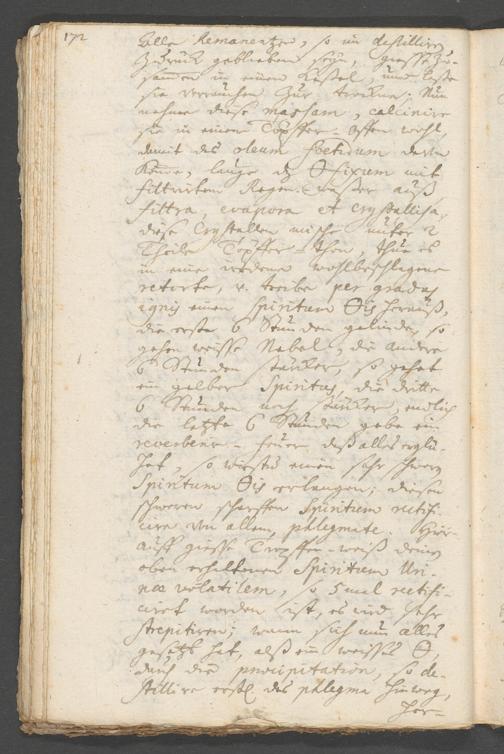 172
alle Remanentzen, so im destilliren
zurück geblieben seyn, giesse zu-
sammen in einen Kessel, und lasse
sie verrauchen zur trockne. Nun
nehme diese massam, calcinire
sie in einem Töpffer-Offen wohl,
damit das oleum foetidum davon
komme, lauge das fixum mit
filtrirten Regen-Wasser auß
filtra, evapora et crystallisa,
diese Crystallen mische unter 2
Theile Töpffer-thon, thue es
in eine irrdene wohlbeschlagene
retorte, v. treibe per gradus
ignis einen Spiritum herauß,
die erste 6 Stunden gelinder, so
gehen weisse Nebel, die andere
6 Stunden stärcker, so gehet
ein gelber Spiritus, die dritte
6 Stunden noch stärcker, endlich
die letzte 6 Stunden gebe ein
reverberir-feuer daß alles erglü-
het, so wirstu einen sehr schweren
Spiritum erlangen; diesen
schweren scharffen Spiritum rectifi-
cire von allem phlegmate. Hier-
auff giesse Tropffen-weiß deinen
oben erhaltenen Spiritum Uri-
nae volatilem, so 5 mal rectifi-
ciret worden ist, es wird sehr
strepitiren; wann sich nun alles
gesetzt hat, alß ein weisses
durch die praecipitation, so de-
stillire erstl. das phlegma hinweg,
her-